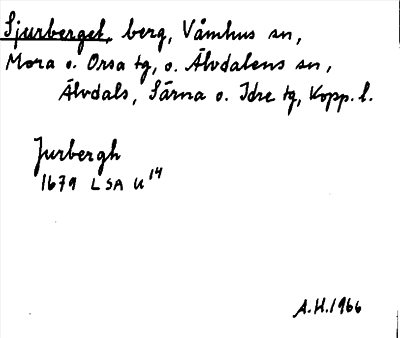 Sjurberget, berg, Våmhus sn,
Mora o. Orsa tg, o. Älvdalens sn,
Älvdals, Särna o. Idre tg, Kopp. l.
Jurbergh
1679 LSA U 14
A.H. 1966